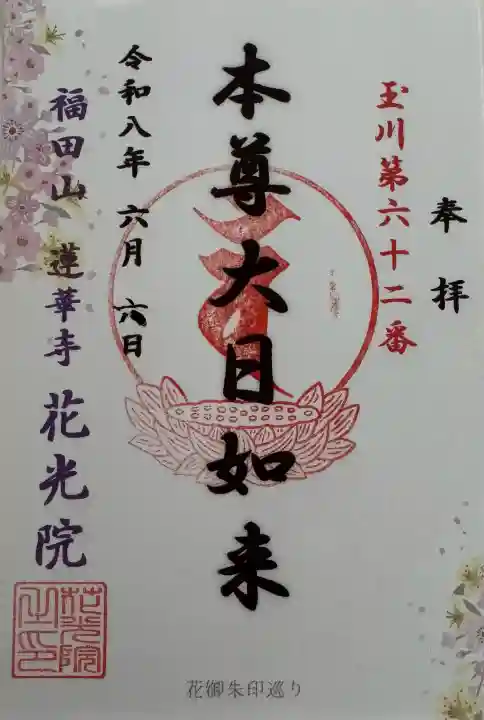 奉拝
玉川第六十二番
本尊大日如来
令和八年 六月 六日
福田山 蓮華寺 花光院
花光院之印
花御朱印巡り